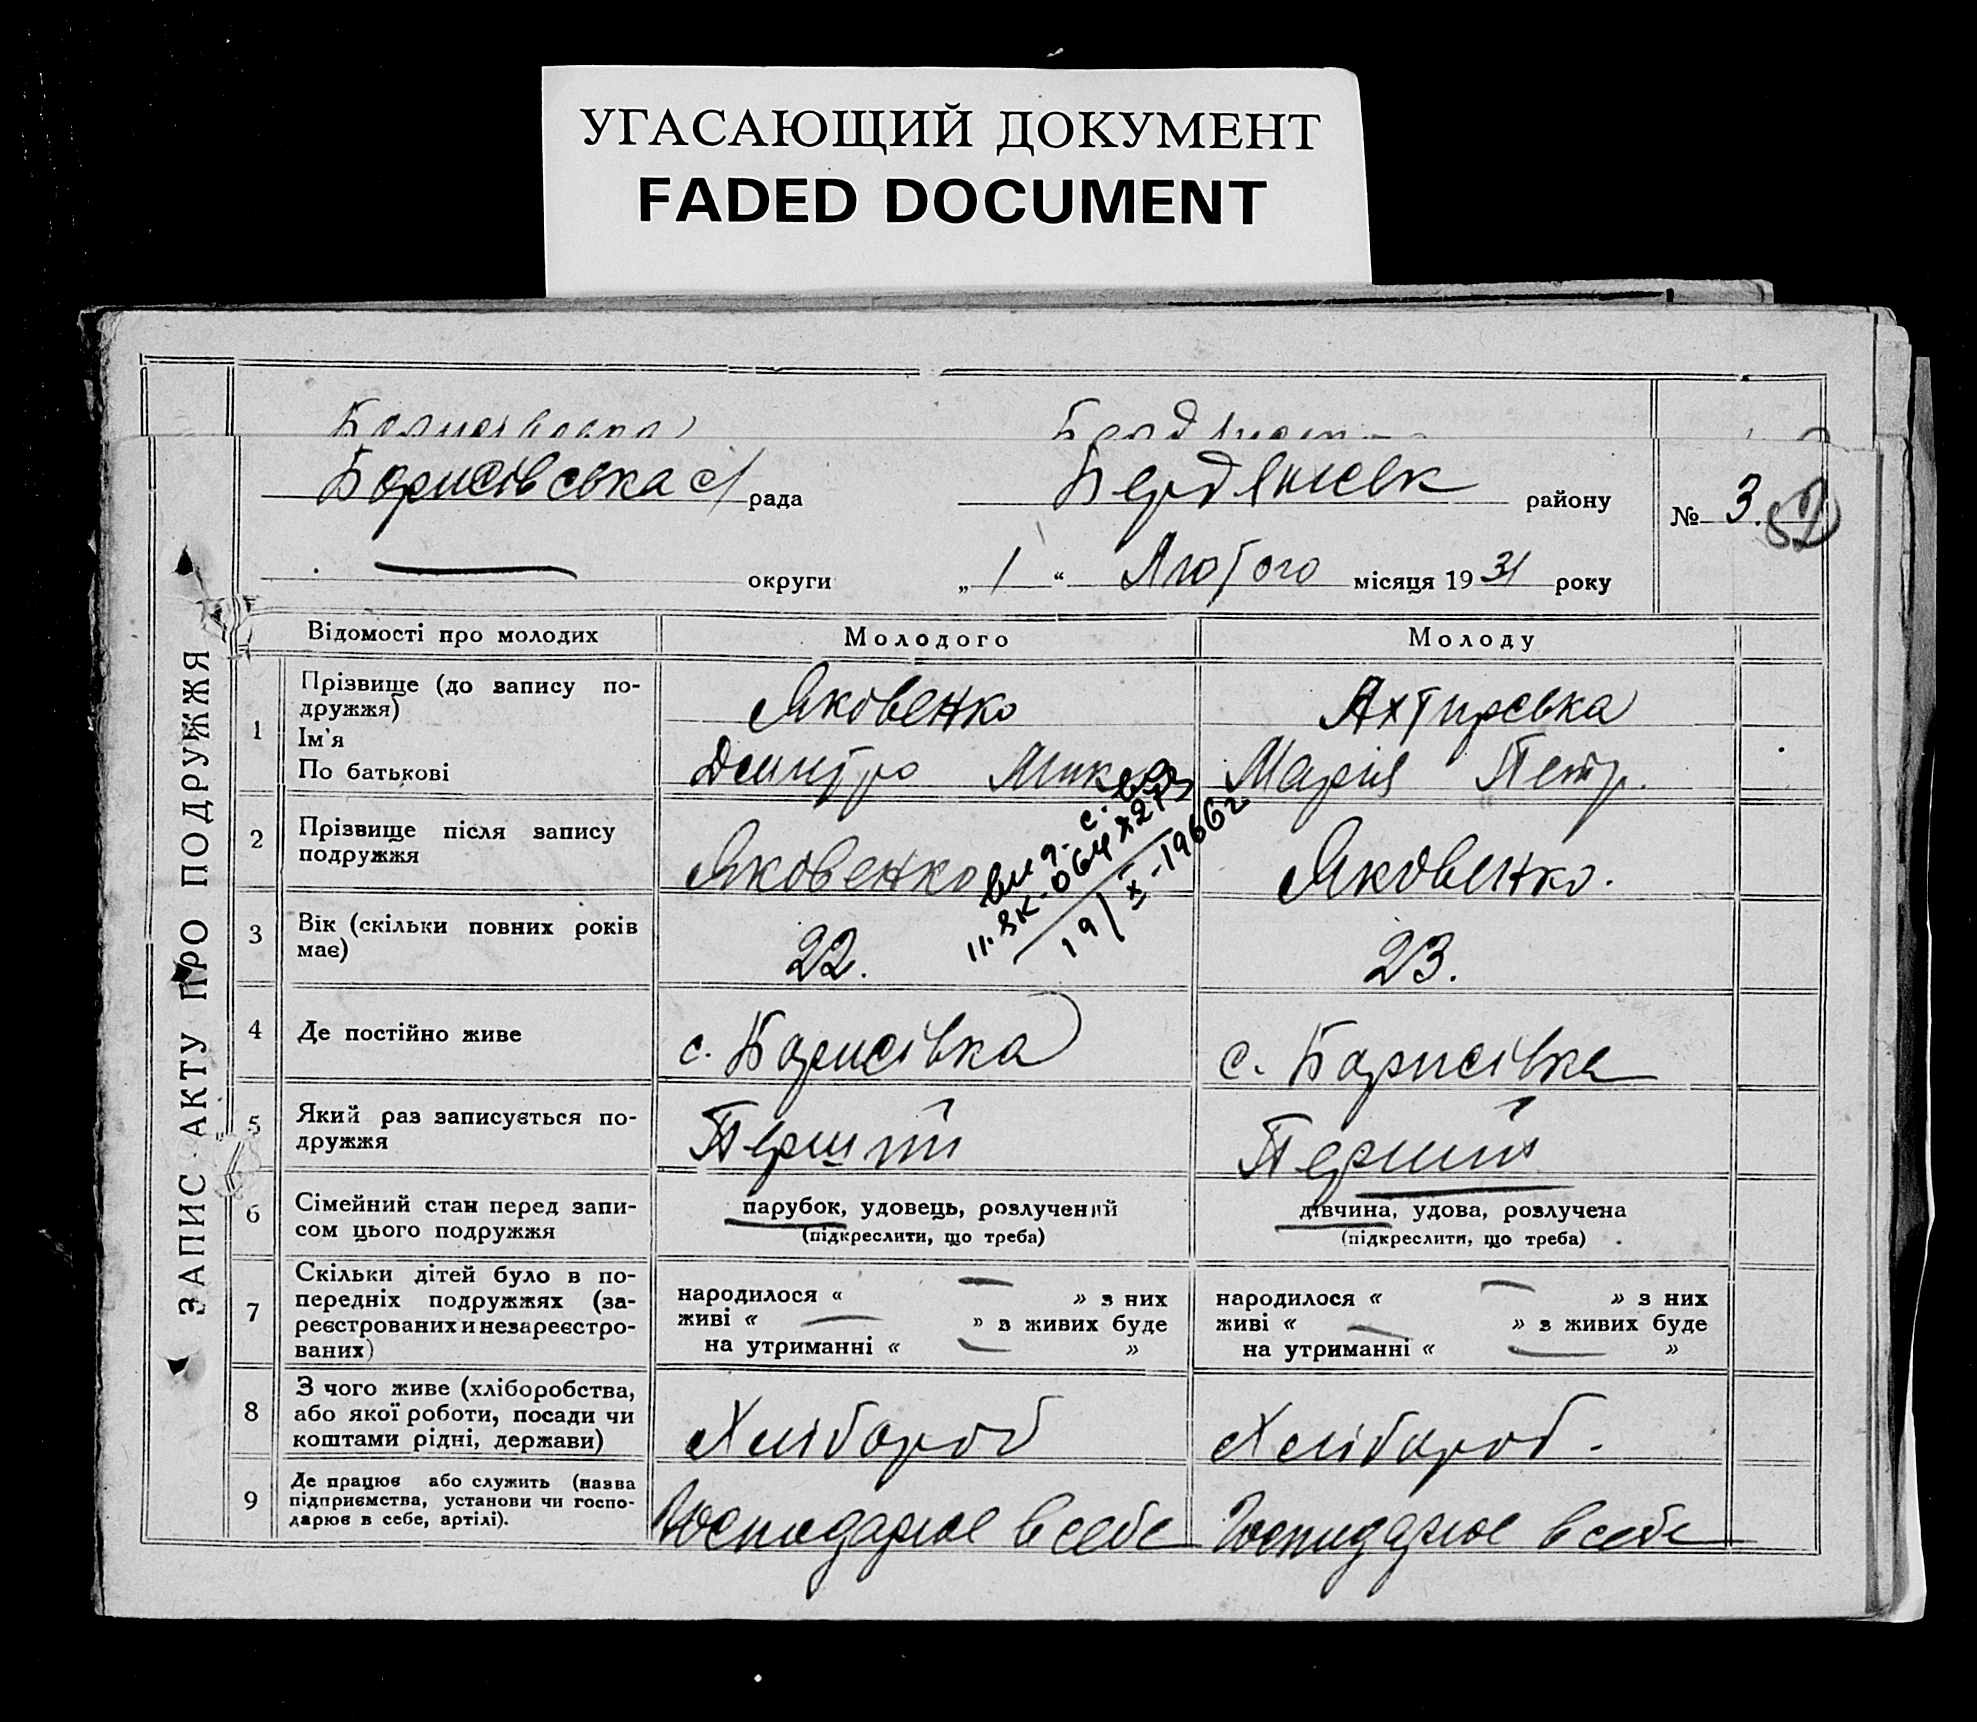 УГАСАЮЩИЙ ДОКУМЕНТ
FADED DOCUMENT
ЗАПИС АКТУ ПРО ПОДРУЖЖЯ
Борисівська с/ рада Бердянськ району № 3.
округи „ 1 “ Лютого місяця 1931 року
Відомості про молодих Молодого Молоду
1 Прізвище (до запису по-
дружжя) Яковенко Ахтирська
Ім'я
По батькові Дмитро Мик Марія Петр.
2 Прізвище після запису
подружжя Яковенко Яковенко.
вид. с. во
II. ЗК-064 *273
19/X-1966 г
3 Вік (скільки повних років
має) 22. 23.
4 Де постійно живе с. Борисівка с. Борисівка
5 Який раз записується по-
дружжя Перший Перший
6 Сімейний стан перед запи-
сом цього подружжя
парубок, удовець, розлучений дівчина, удова, розлучена
(підкреслити, що треба) (підкреслити, що треба)
7 Скільки дітей було в по-
передніх подружжях (за-
реєстрованих и незареєстро-
ваних)
народилося « » з них народилося « » з них
живі « » з живих буде живі « » з живих буде
на утриманні « » на утриманні « »
8 З чого живе (хліборобства,
або якої роботи, посади чи
коштами рідні, держави) Хлібороб Хлібороб.
9 Де працює або служить (назва
підприємства, установи чи госпо-
дарює в себе, артілі). Господарює в себе Господарює в себе